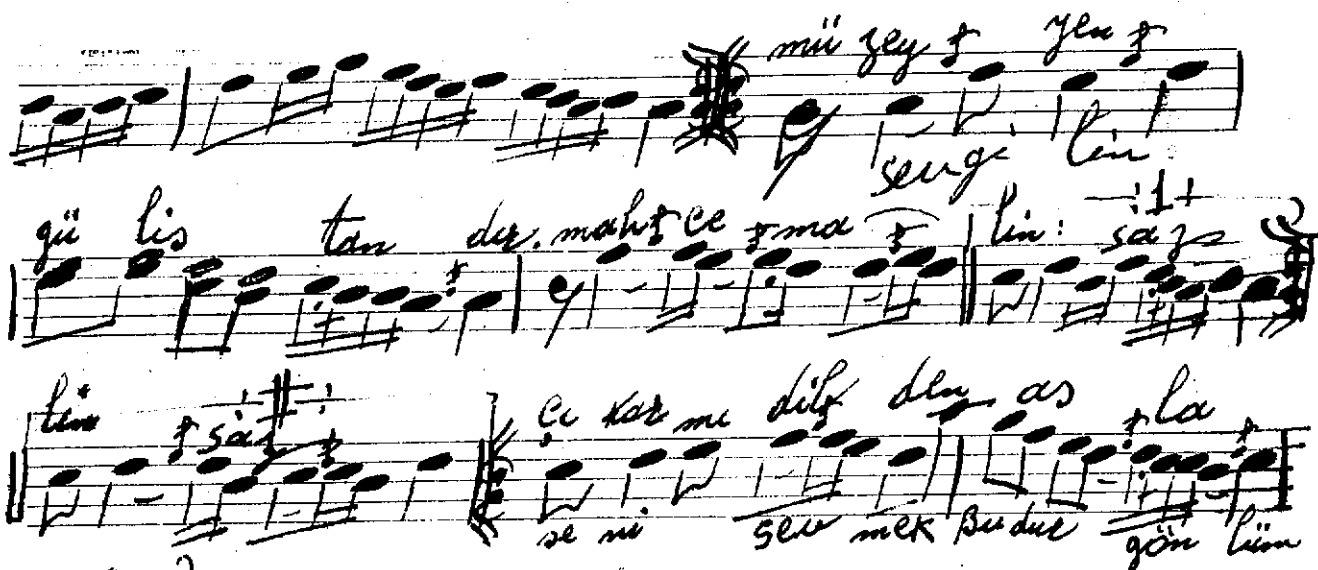 mü zey yen
sevgi lin
gü lis tan dır. mah ce ma lin: saz
1
lin saz
II
çı kar mı dil den as la
se ni sev mek Budur gön lüm